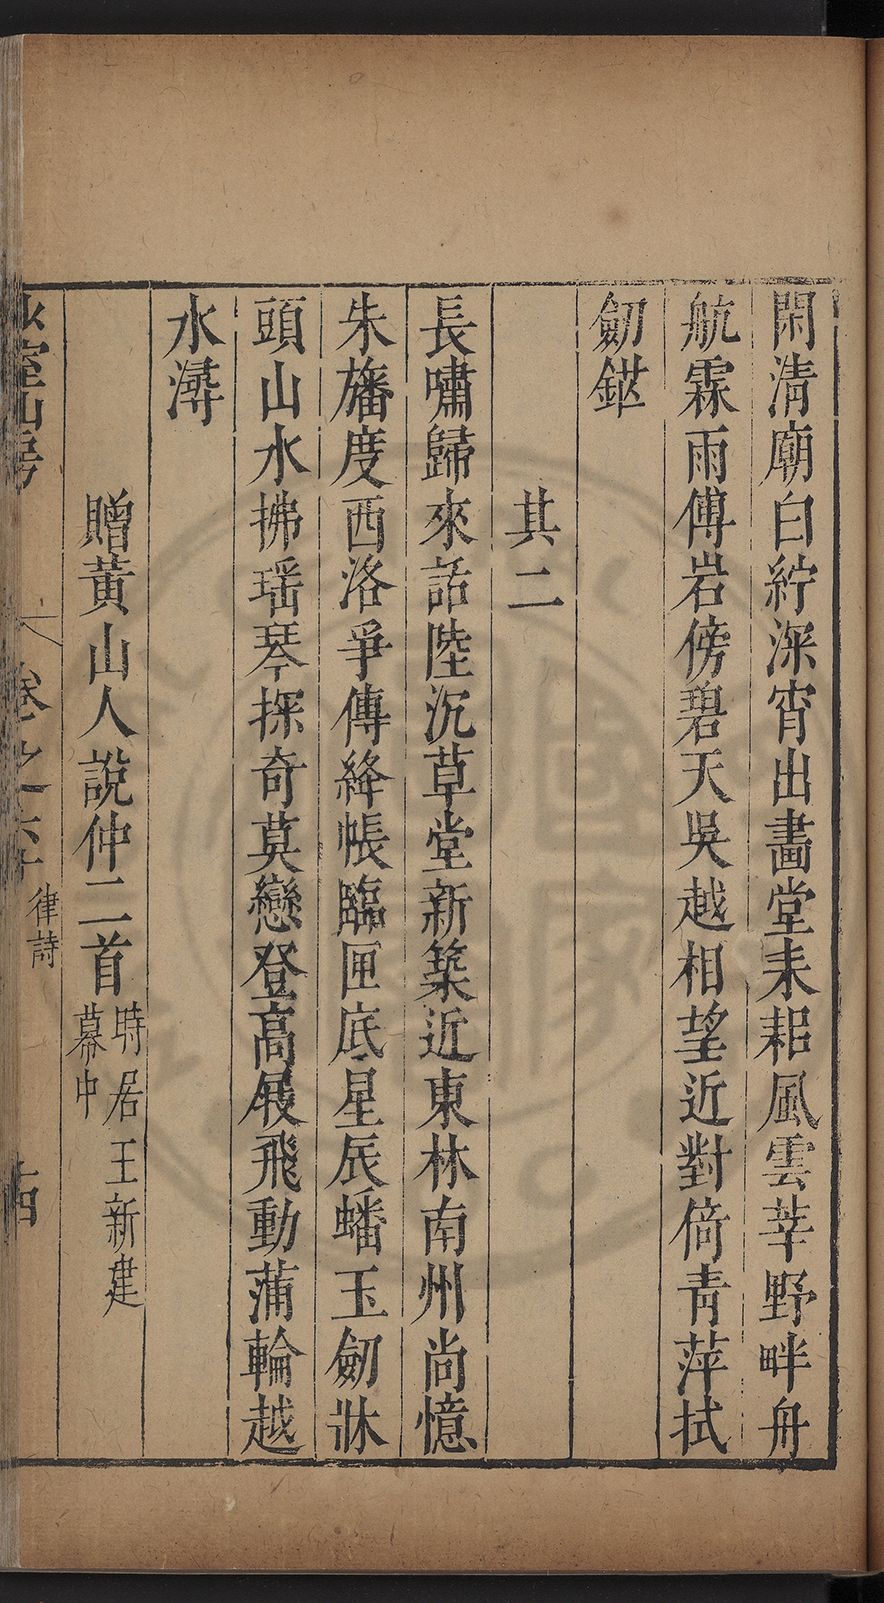 閑清廟白紵深宵出畵堂耒耜風雲莘野畔舟
航霖雨傅岩傍碧天吳越相望近對倚青萍拭
劒鋩
其二
長嘯歸來話陸沉草堂新築近東林南州尚憶
朱旛度西洛爭傳絳帳臨匣底星辰蟠玉劒牀
頭山水拂瑶琴探奇莫戀登高屐飛動蒲輪越
水潯
贈黄山人說仲二首時居王新建
幕中
室山房
卷之
律詩